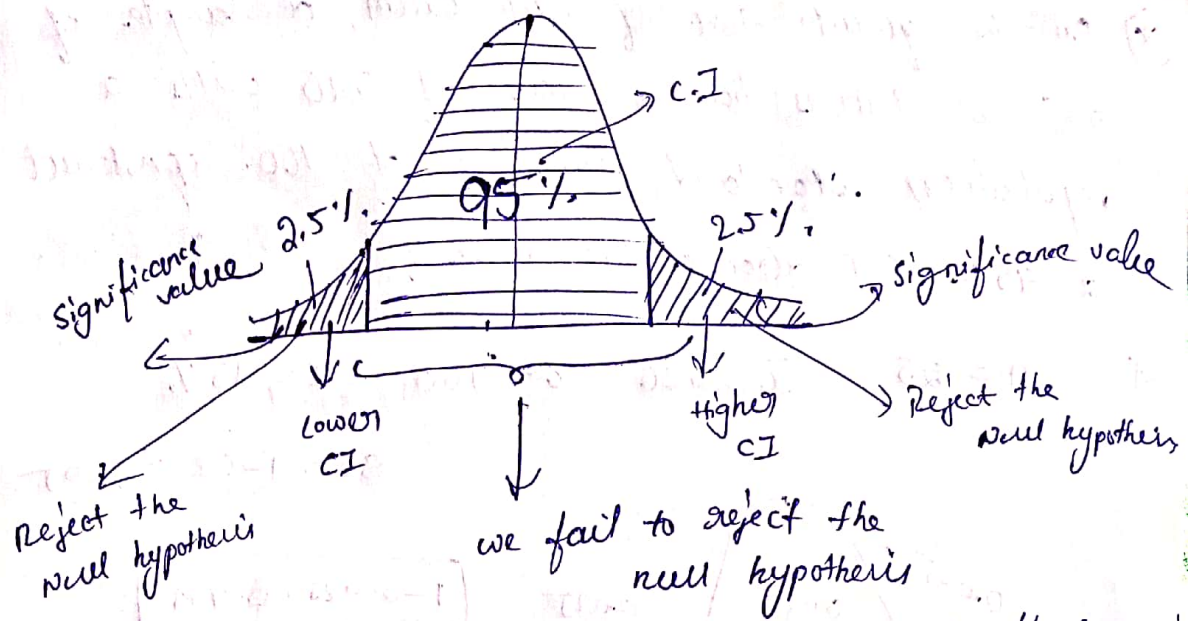 C.I
95%
2.5%.
2.5%.
Significance
value
Significance value
Lower
CI
Higher
CI
Reject the
Null hypothesis
Reject the
Null hypothesis
we fail to reject the
null hypothesis